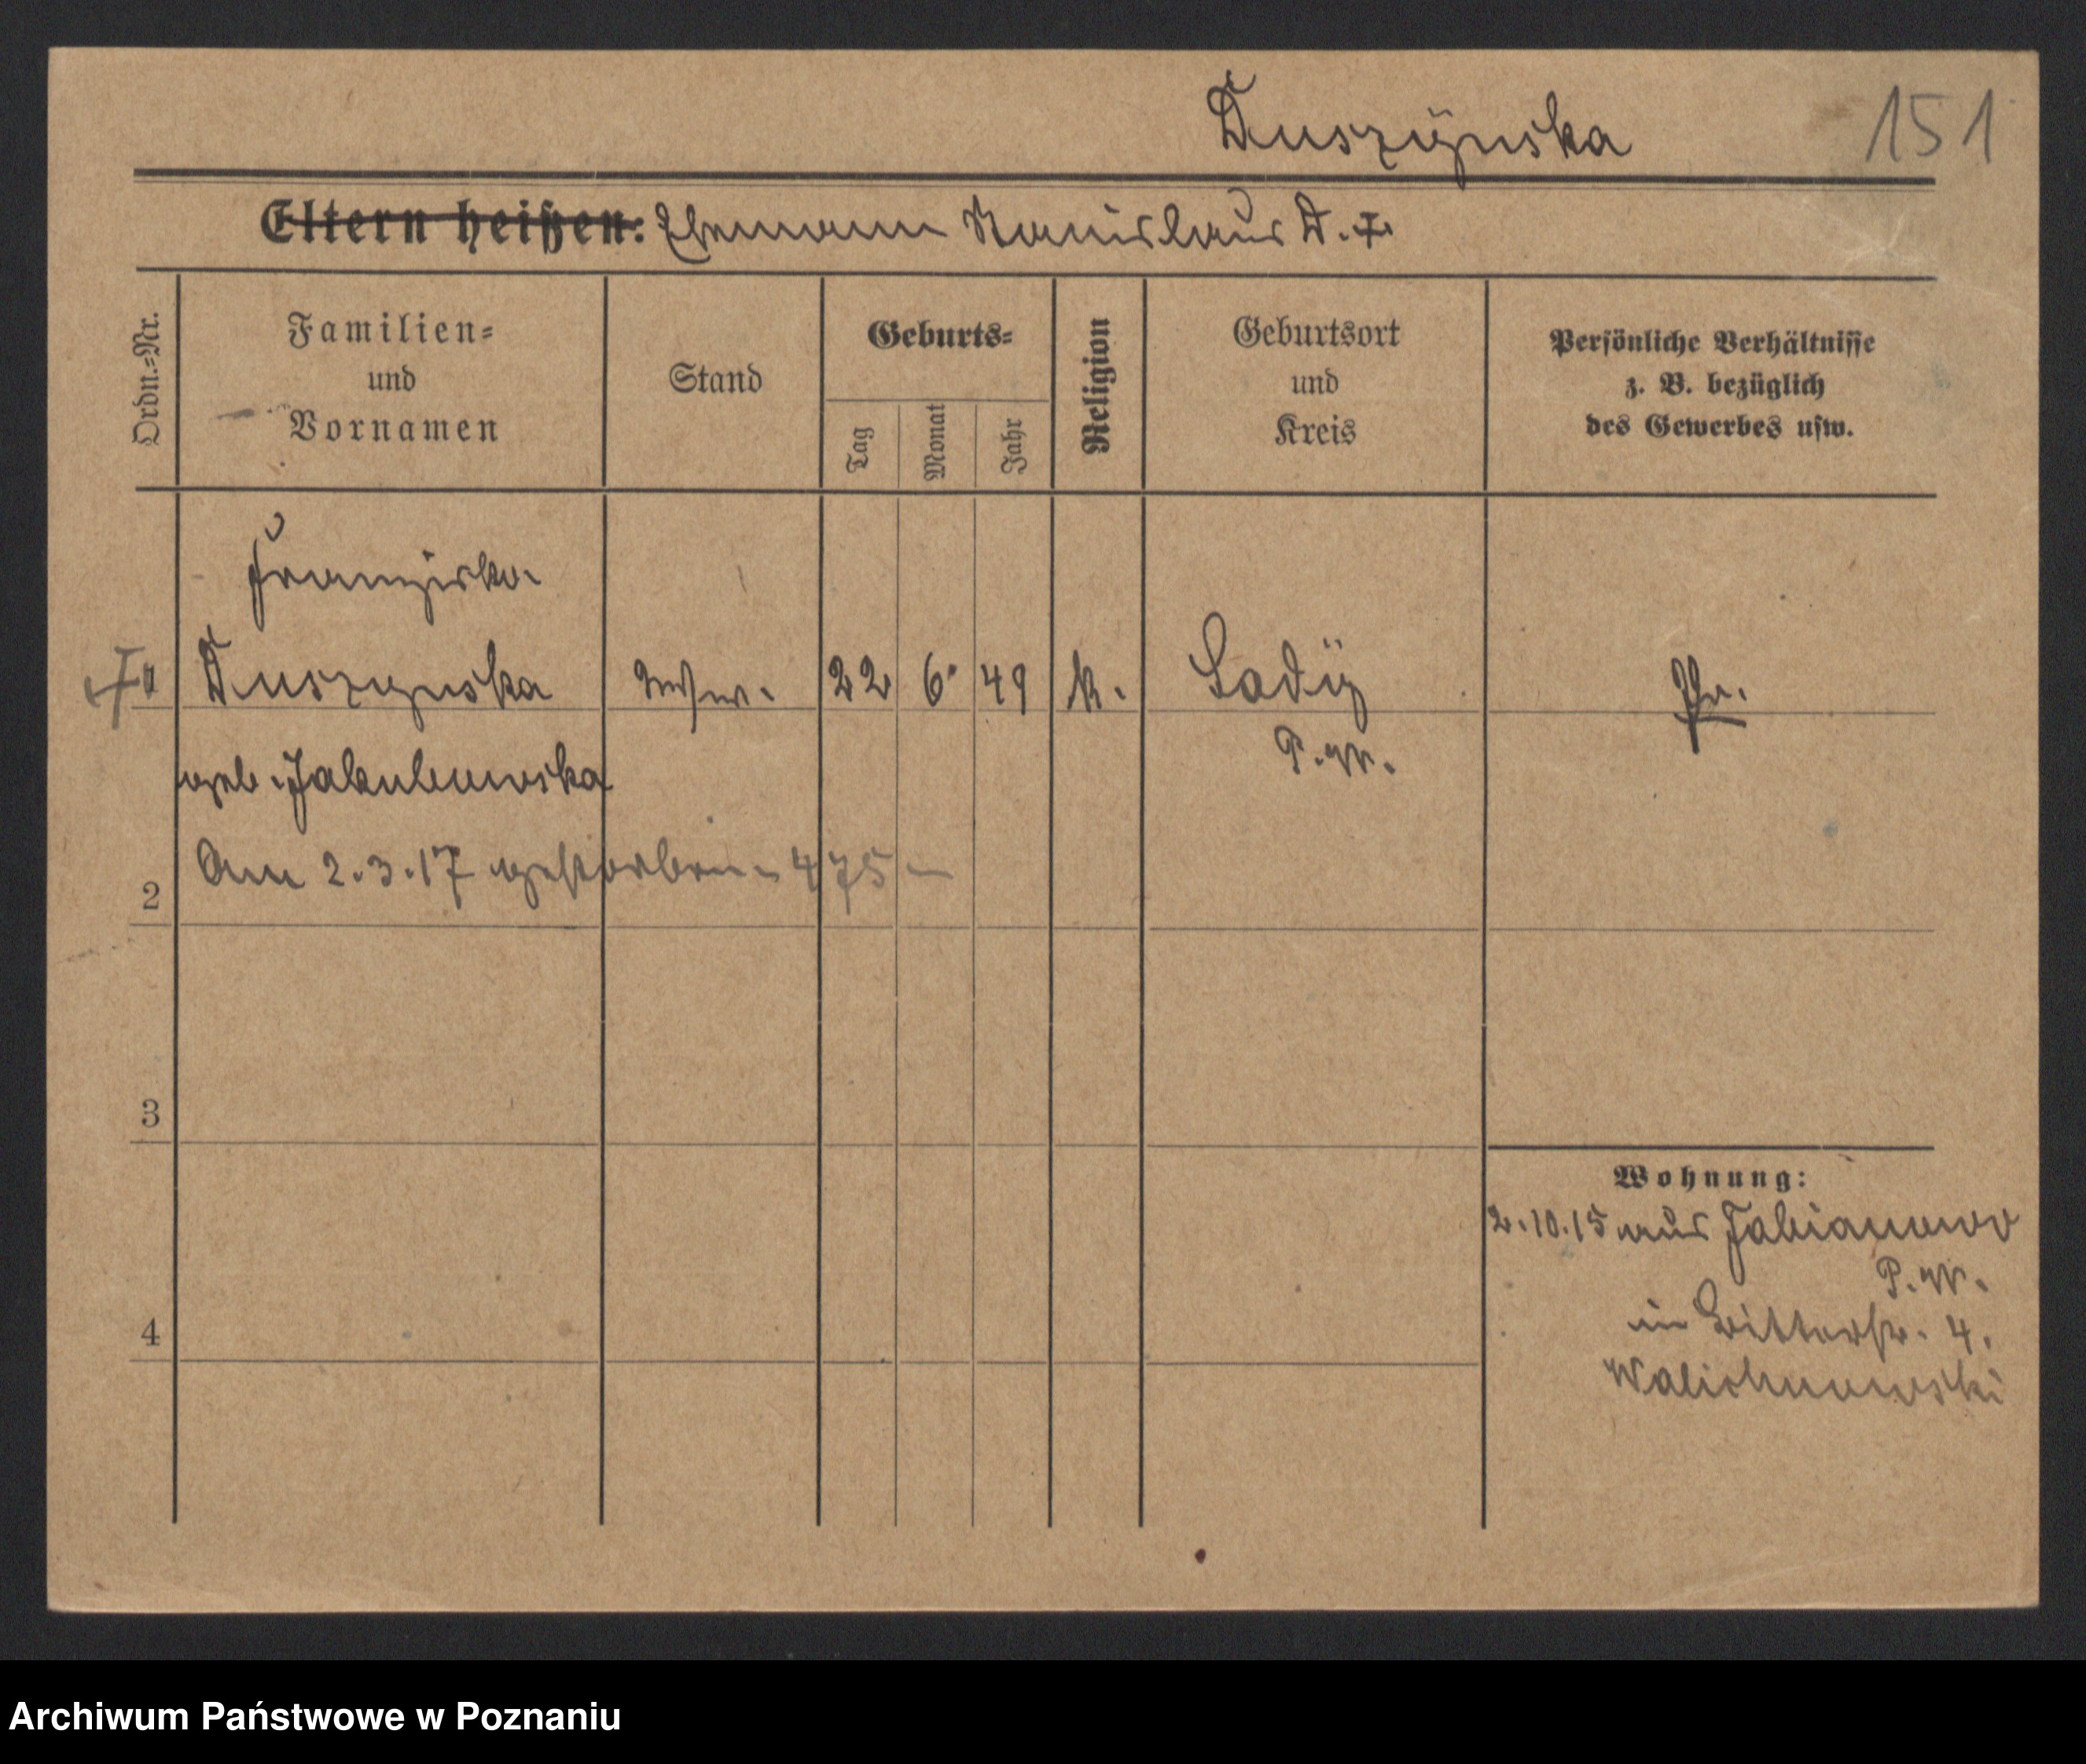 Duszyńska 151
Eltern heißen: Ehemann Stanislaus D. †
Ordn.=Nr.
Familien=
und
Vornamen
Stand
Geburts=
Tag
Monat
Jahr
Religion
Geburtsort
und
Kreis
Persönliche Verhältnisse
z. B. bezüglich
des Gewerbes usw.
Franziska
† 1 Duszynska Wwe. 22 6. 49 k. Sady Pr.
geb. Jakubowska P. W.
2 Am 2.3.17 gestorben - 475 -
3
Wohnung:
2.10.15 aus Fabianowo
P. W.
4 in Bitterstr. 4.
Walichnowski
Archiwum Państwowe w Poznaniu